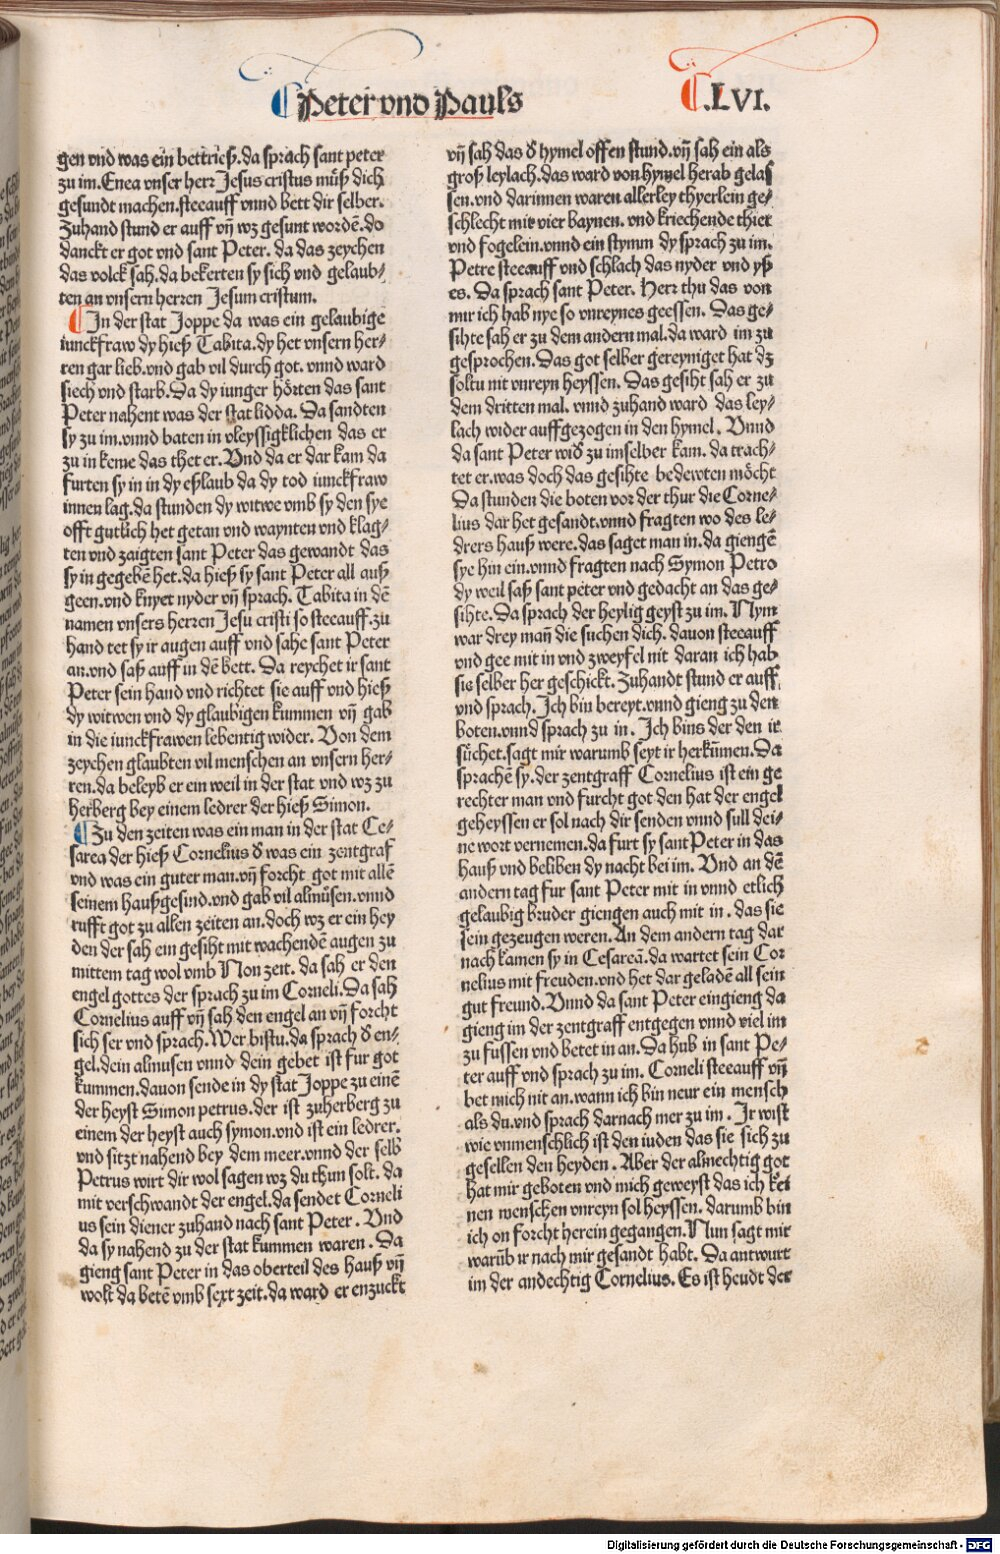 Peter vnd Pauls
.LVI.
gen vnd was ein bettriß.da sprach sant peter
zu im.Enea vnser herr Jesus cristus müß dich
gesundt machen.steeauff vnnd bett dir selber.
Zuhand stund er auff vn̄ wz gesunt wordē.do
danckt er got vnd sant Peter. da das zeychen
das volck sah.da bekerten sy sich vnd gelaub⸗
ten an vnsern herren Jesum cristum.
In der stat Joppe da was ein gelaubige
iunckfraw dy hieß Tabita.dy het vnsern her⸗
ren gar lieb.vnd gab vil durch got. vnnd ward
siech vnd starb.Da dy iunger hörten das sant
Peter nahent was der stat lidda. Da sandten
sy zu im.vnnd baten in vleyssigklichen das er
zu in keme das thet er.Vnd da er dar kam da
furten sy in in dy eßlaub da dy tod iunckfraw
innen lag.da stunden dy witwe vmb sy den sye
offt gutlich het getan vnd waynten vnd klag⸗
ten vnd zaigten sant Peter das gewandt das
sy in gegebē het.da hieß sy sant Peter all auß
geen.vnd knyet nyder vn̄ sprach. Tabita in dē
namen vnsers herren Jesu cristi so steeauff.zu
hand tet sy ir augen auff vnd sahe sant Peter
an.vnd saß auff in dē bett. Da reychet ir sant
Peter sein hand vnd richtet sie auff vnd hieß
dy witwen vnd dy glaubigen kummen vn̄ gab
in die iunckfrawen lebentig wider. Von dem
zeychen glaubten vil menschen an vnsern her⸗
ren.da beleyb er ein weil in der stat vnd wz zu
herberg bey einem ledrer der hieß Simon.
Zu den zeiten was ein man in der stat Ce⸗
sarea der hieß Cornelius d̄ was ein zentgraf
vnd was ein guter man.vn̄ forcht got mit allē
seinem haußgesind.vnd gab vil almüsen.vnnd
rufft got zu allen zeiten an.doch wz er ein hey
den der sah ein gesiht mit wachendē augen zu
mittem tag wol vmb Non zeit. da sah er den
engel gottes der sprach zu im Corneli.Da sah
Cornelius auff vn̄ sah den engel an vn̄ forcht
sich ser vnd sprach.Wer bistu.da sprach d̄ en⸗
gel.dein almusen vnnd dein gebet ist fur got
kummen.dauon sende in dy stat Joppe zu einē
der heyst Simon petrus.der ist zuherberg zu
einem der heyst auch symon.vnd ist ein ledrer.
vnd sitzt nahend bey dem meer.vnnd der selb
Petrus wirt dir wol sagen wz du thun solt. da
mit verschwandt der engel.da sendet Corneli
us sein diener zuhand nach sant Peter. Vnd
da sy nahend zu der stat kummen waren. Da
gieng sant Peter in das oberteil des hauß vn̄
wolt da betē vmb sext zeit.da ward er enzuckt
vn̄ sah das d̄ hymel offen stund.vn̄ sah ein als
groß leylach.das ward von hymel herab gelas
sen.vnd darinnen waren allerley thyerlein ge⸗
schlecht mit vier baynen. vnd kriechende thier
vnd fogelein.vnnd ein stymm dy sprach zu im.
Petre steeauff vnd schlach das nyder vnd yß
es. Da sprach sant Peter. Herr thu das von
mir ich hab nye so vnreynes geessen. Das ge⸗
sihte sah er zu dem andern mal.da ward im zu
gesprochen.Das got selber gereyniget hat dz
soltu nit vnreyn heyssen. Das gesiht sah er zu
dem dritten mal. vnnd zuhand ward das ley⸗
lach wider auffgezogen in den hymel. Vnnd
da sant Peter wid̄ zu imselber kam. da trach⸗
tet er.was doch das gesihte bedewten möcht
Da stunden die boten vor der thur die Corne⸗
lius dar het gesandt.vnnd fragten wo des le⸗
drers hauß were.das saget man in.da giengē
sye hin ein.vnnd fragten nach Symon Petro
dy weil saß sant peter vnd gedacht an das ge⸗
sihte.Da sprach der heylig geyst zu im. Nym
war drey man̄ die suchen dich. dauon steeauff
vnd gee mit in vnd zweyfel nit daran ich hab
sie selber her geschickt.Zuhandt stund er auff
vnd sprach.Ich bin bereyt.vnnd gieng zu den
boten.vnnd sprach zu in. Ich bins der den ir
süchet.sagt mir warumb seyt ir herkūmen.Da
sprachē sy.der zentgraff Cornelius ist ein ge
rechter man vnd furcht got den hat der engel
geheyssen er sol nach dir senden vnnd sull dei⸗
ne wort vernemen.da furt sy sant Peter in das
hauß vnd beliben dy nacht bei im. Vnd an dē
andern tag fur sant Peter mit in vnnd etlich
gelaubig bruder giengen auch mit in. das sie
sein gezeugen weren. An dem andern tag dar
nach kamen sy in Cesareā.da wartet sein Cor
nelius mit freuden.vnd het dar geladē all sein
gut freund.Vnnd da sant Peter eingieng da
gieng im der zentgraff entgegen vnnd viel im
zu fussen vnd betet in an.Da hub in sant Pe⸗
ter auff vnd sprach zu im. Corneli steeauff vn̄
bet mich nit an.wann ich bin neur ein mensch
als du.vnd sprach darnach mer zu im. Ir wist
wie vnmenschlich ist den iuden das sie sich zu
gesellen den heyden. Aber der almechtig got
hat mir geboten vnd mich geweyst das ich kei
nen menschen vnreyn sol heyssen. darumb bin
ich on forcht herein gegangen.Nun sagt mir
warūb ir nach mir gesandt habt. Da antwurt
im der andechtig Cornelius. Es ist heudt der
Digitalisierung gefördert durch die Deutsche Forschungsgemeinschaft - DFG